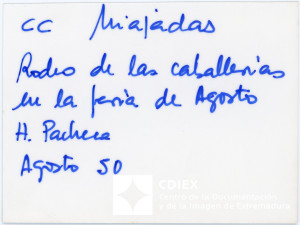 CC Miajadas
Rodeo de las caballerias
en la feria de Agosto
H. Pacheca
Agosto 50
CDIEX